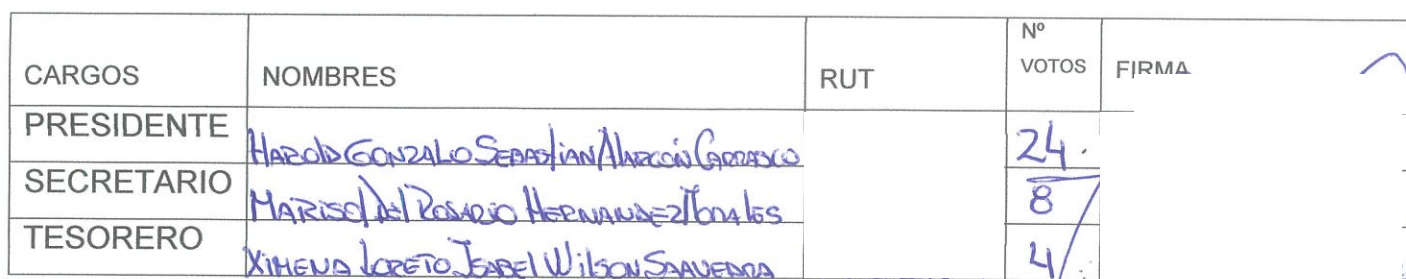 CARGOS NOMBRES RUT Nº VOTOS FIRMA
PRESIDENTE HAROLD GONZALO SEBASTIAN ALARCÓN CARRASCO 24.
SECRETARIO MARISOL DEL ROSARIO HERNANDEZ MORALES 8
TESORERO XIMENA LORETO ISABEL WILSON SAAVEDRA 4